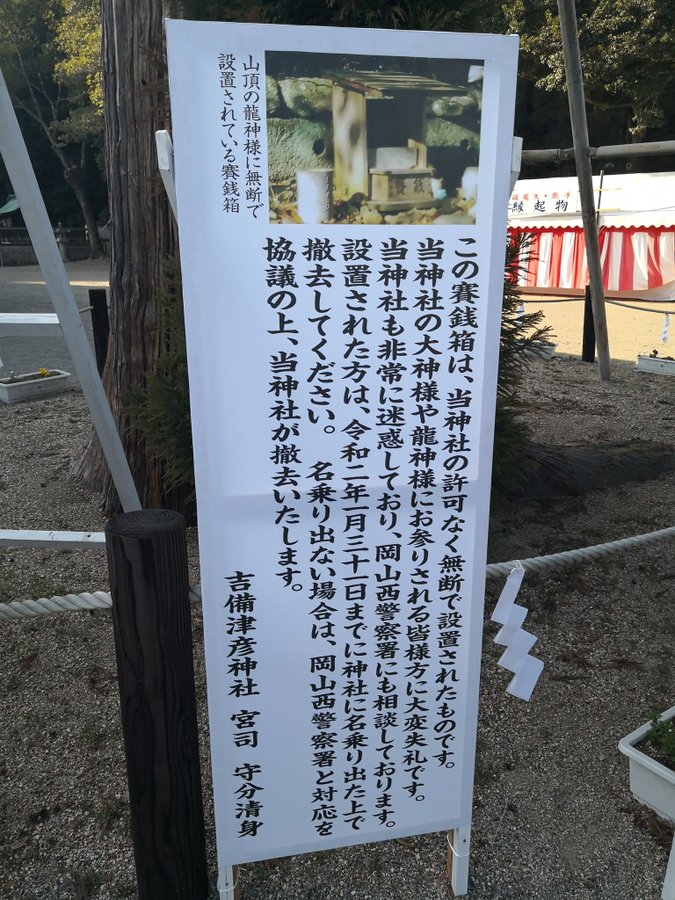 山頂の龍神様に無断で
設置されている賽銭箱
この賽銭箱は、当神社の許可なく無断で設置されたものです。
当神社の大神様や龍神様にお参りされる皆様方に大変失礼です。
当神社も非常に迷惑しており、岡山西警察署にも相談しております。
設置された方は、令和二年一月三十一日までに神社に名乗り出た上で
撤去してください。 名乗り出ない場合は、岡山西警察署と対応を
協議の上、当神社が撤去いたします。
吉備津彦神社 宮司 守分清身
縁起物